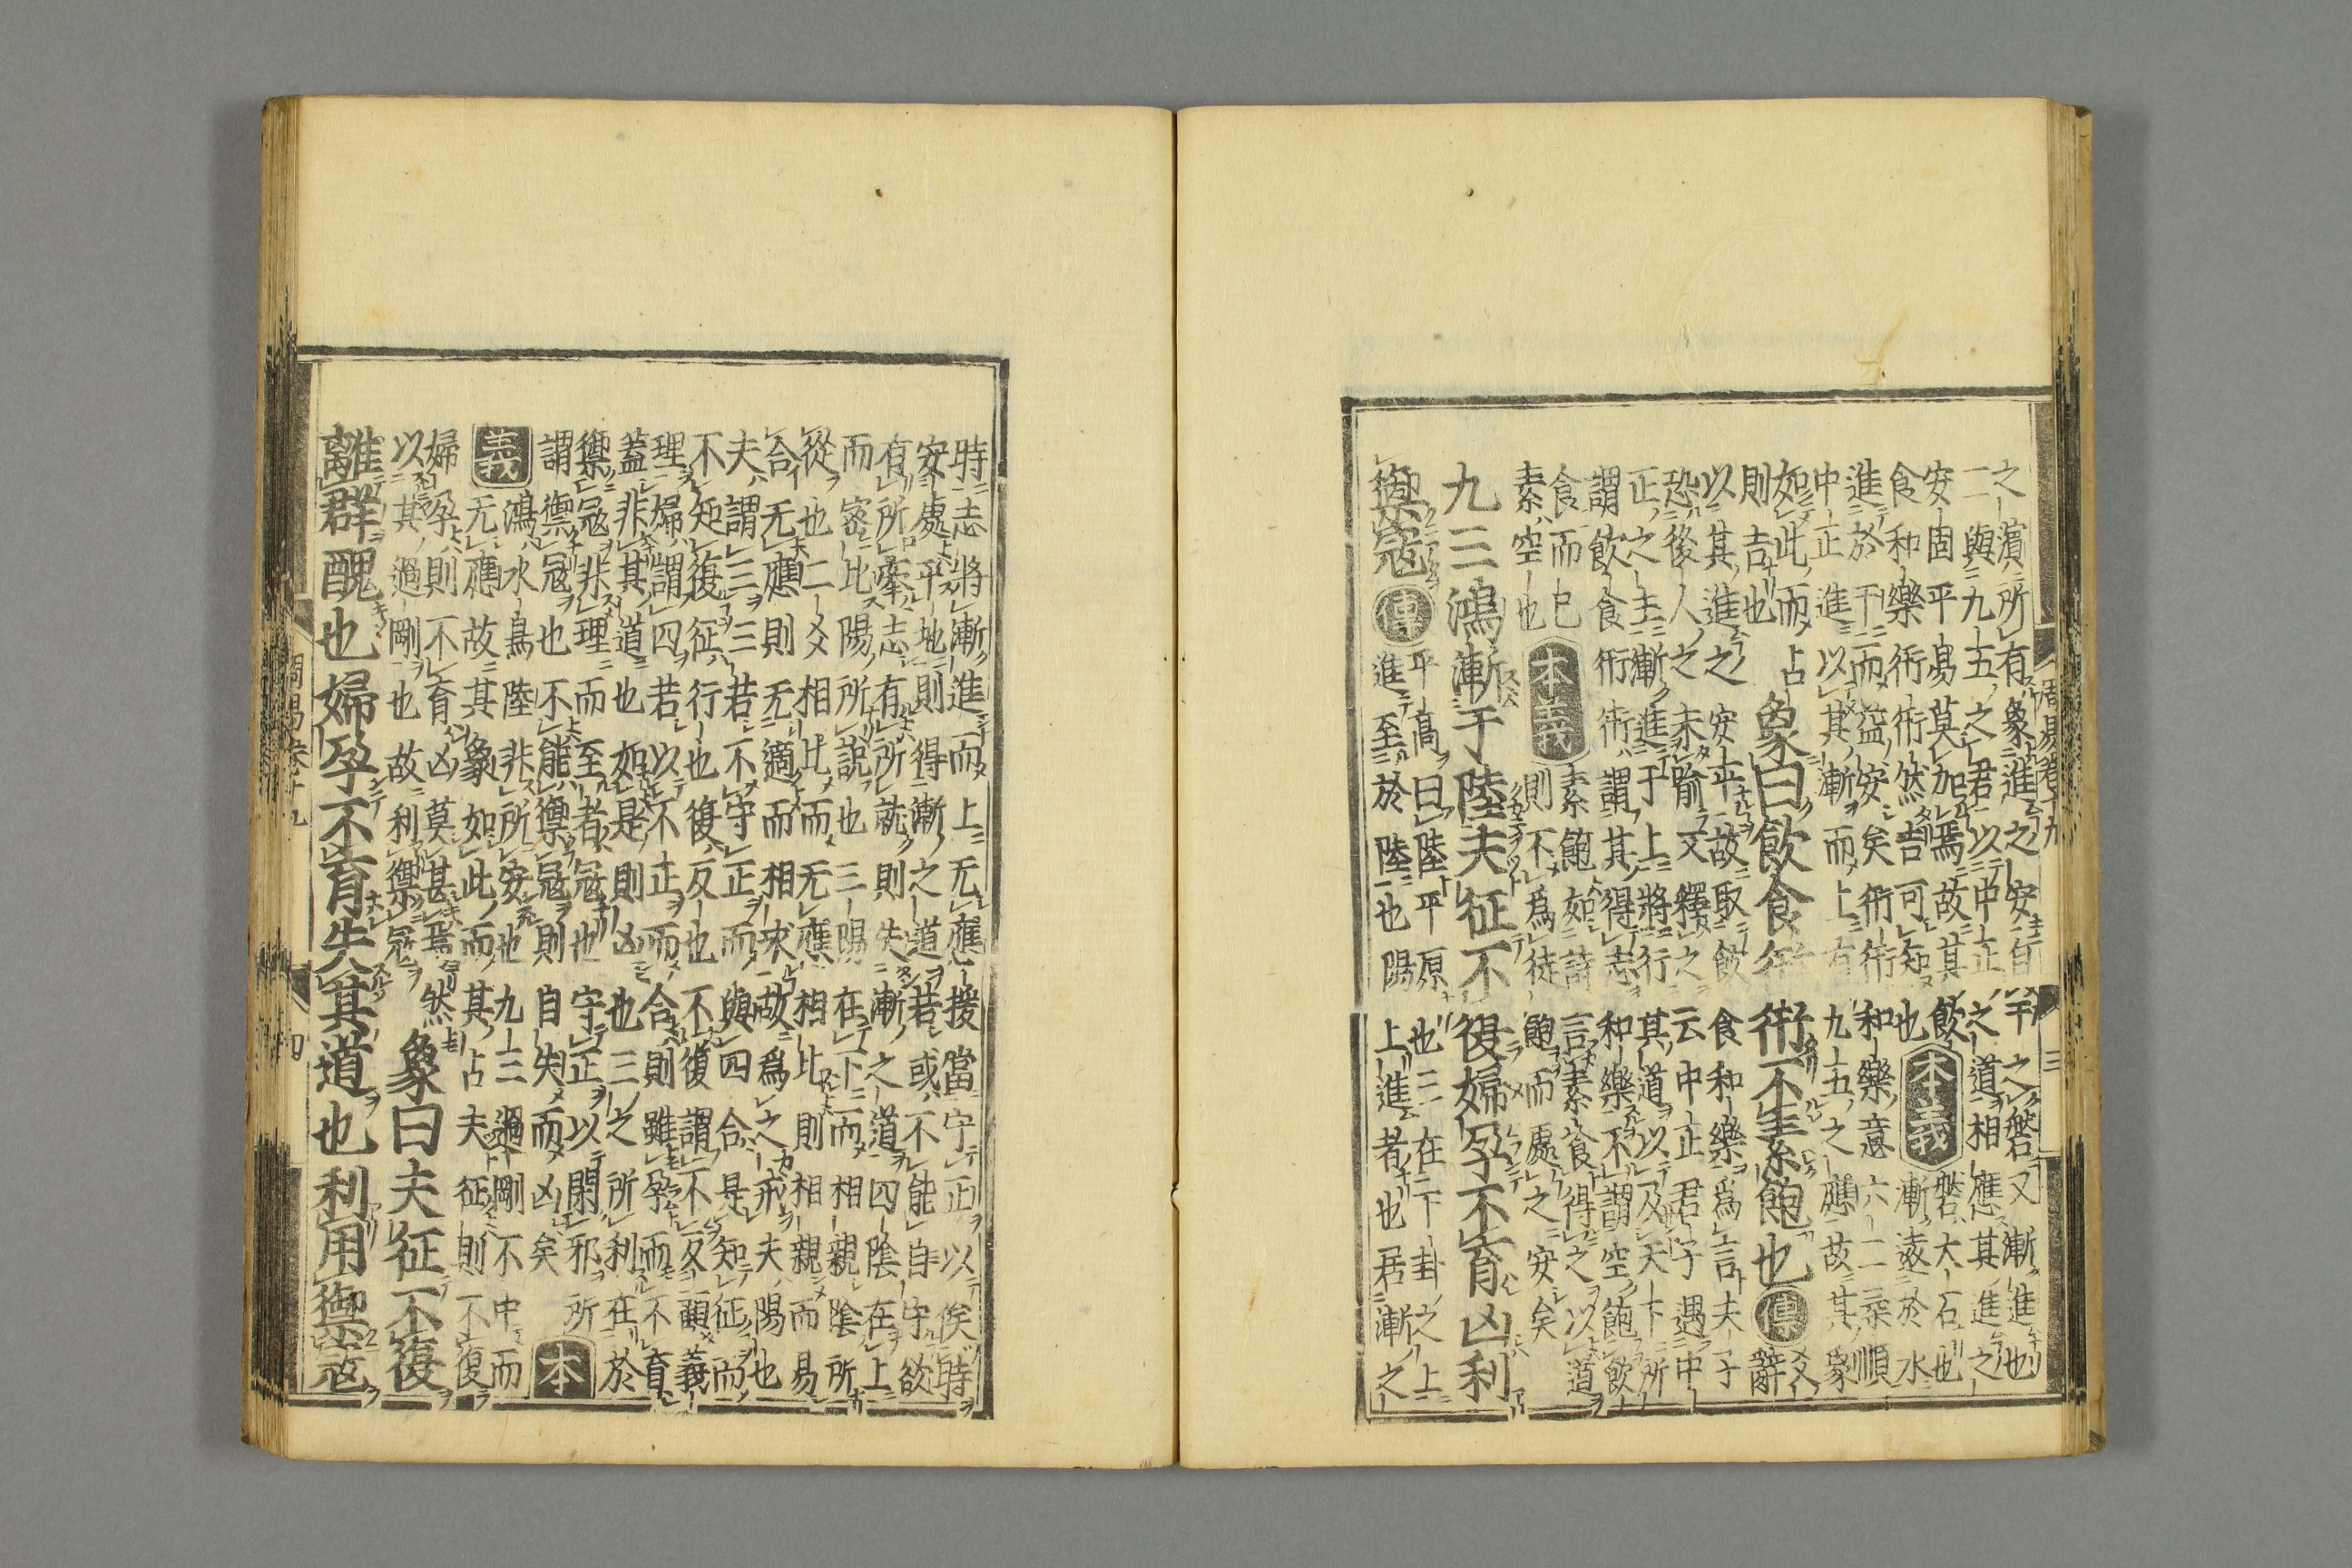 周易卷十九 三
之濱所有象進之安自干之磐又漸進也
二與九五之君以中正之道相應其進之
安固平易莫加焉故其飲
食和樂衎衎然吉可知也
本義
磐大石也
漸遠於水
進於干而益安矣衎衎和樂意六二柔順
中正進以其漸而上有九五之應故其象
如此而占
則吉也
象曰飲食衎衎不素飽也
傳
爻
辭
以其進之安平故取飲食和樂爲言夫子
恐後人之未喻又釋之云中正君子遇中
正之主漸進于上將行其道以及天下所
謂飲食衎衎謂其得志和樂不謂空飽飲
食而已
素空也
本義
素飽如詩言素飡得之以道
則不爲徒飽而處之安矣
九三鴻漸于陸夫征不復婦孕不育凶利
禦寇
傳
平高曰陸平原也三在下卦之上
進至於陸也陽上進者也居漸之
時志將漸進而上无應援當守正以俟時
安處平地則得漸之道若或不能自守欲
有所牽志有所就則失漸之道四陰在上
而密比陽所說也三陽在下而相親陰所
從也二爻相比而无應相比則相親而易
合无應則无適而相求故爲之戒夫陽也
夫謂三三若不守正而與四合是知征而
不知復征行也復反也不復謂不反顧義
理婦謂四若以不正而合則雖孕而不育
蓋非其道也如是則凶也三之所利在於
禦寇非理而至者寇也守正以閑邪所
謂禦寇也不能禦寇則自失而凶矣
本
義
鴻水鳥陸非所安也九三過剛不中而
无應故其象如此而其占夫征則不復
婦孕則不育凶莫甚焉然
以其過剛也故利禦寇
象曰夫征不復
離群醜也婦孕不育失其道也利用禦寇
周易卷十九 四